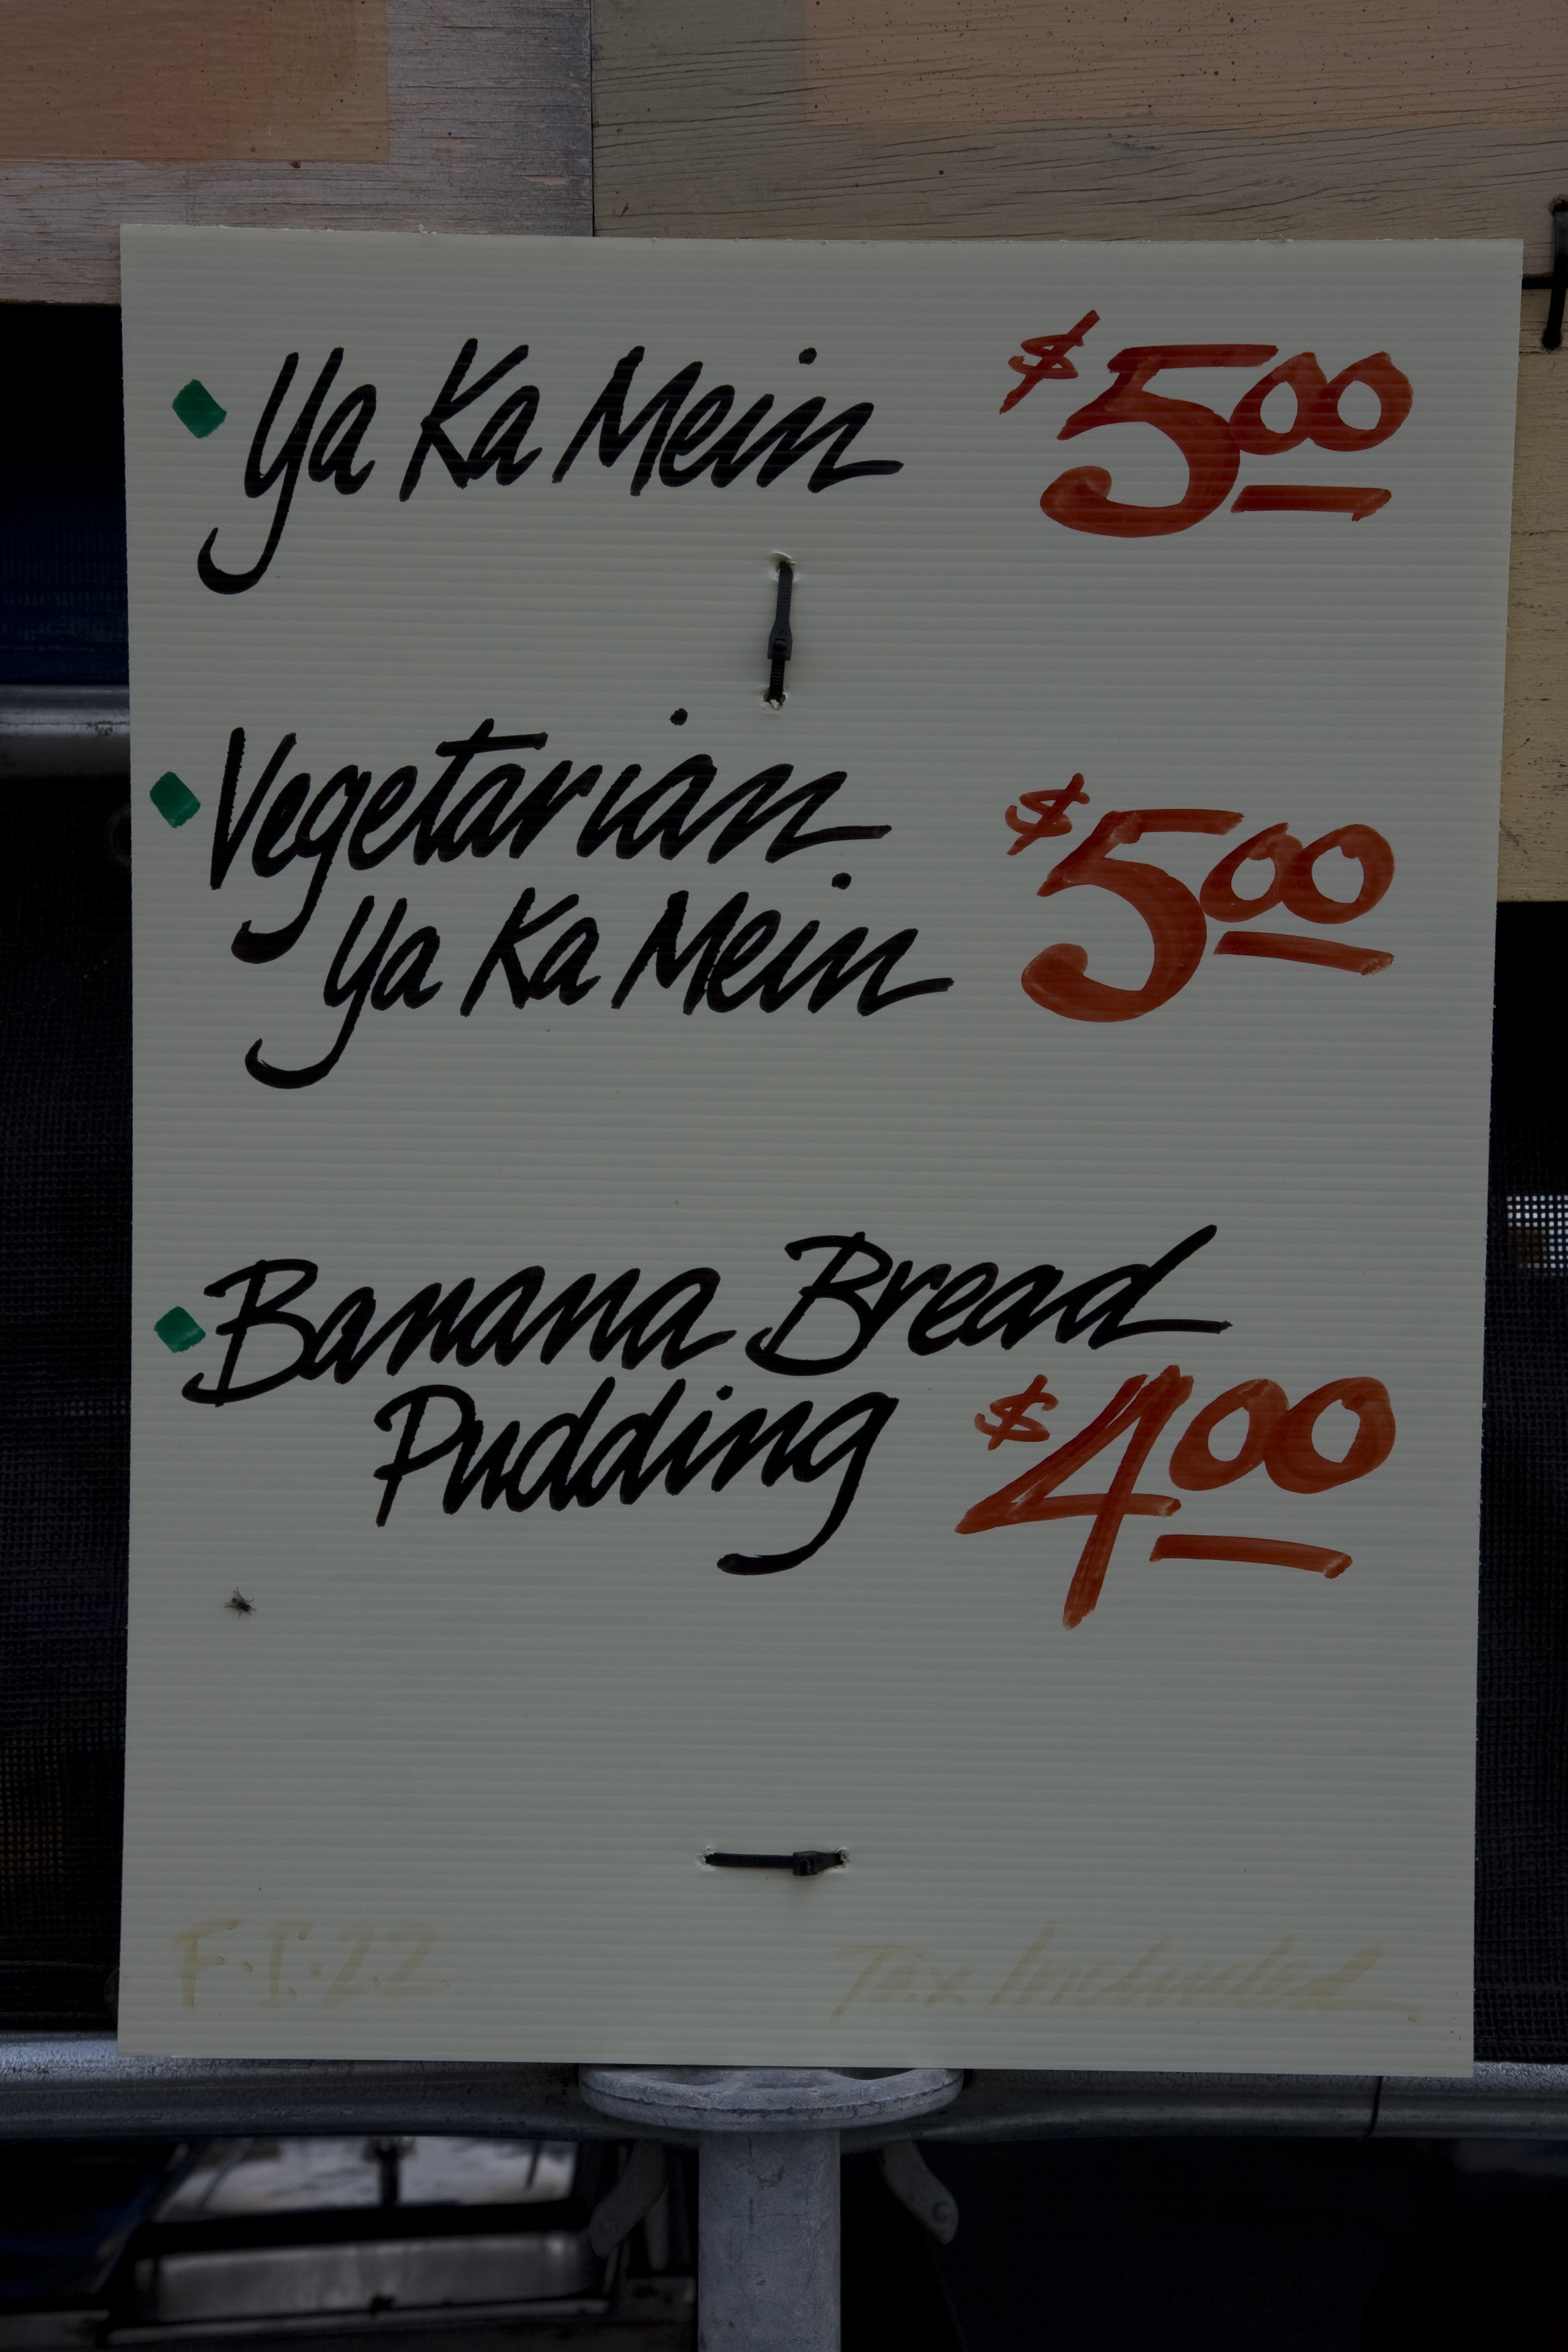 Ya Ka Mein $5.00
Vegetarian
Ya Ka Mein $5.00
Banana Bread
Pudding $4.00
F.I.22 Tax Included